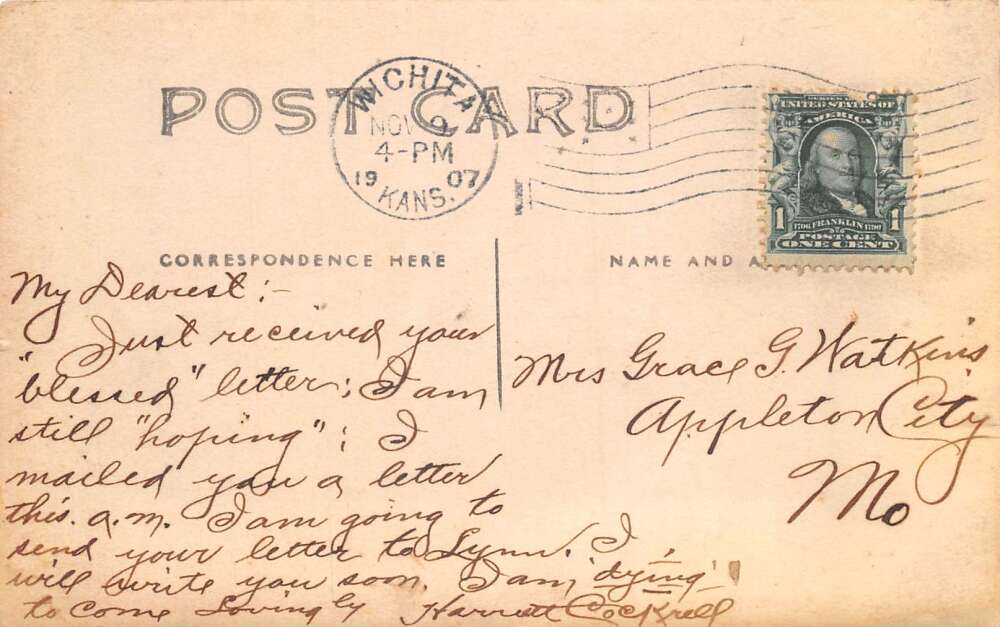 POST CARD
WICHITA
NOV 9
4-PM
1907
KANS.
SERIES 1902
UNITED STATES OF
AMERICA
1706 FRANKLIN 1790
1 1
POSTAGE
ONE CENT
CORRESPONDENCE HERE
NAME AND A
My Dearest:-
Just received your
"blessed" letter; I am
still "hoping"; I
mailed you a letter
this. a.m. I am going to
send your letter to Lynn. I
will write you soon. I am, "dying"
to come Lovingly Harriett Cockrell
Mrs Grace G. Watkins
Appleton City
Mo